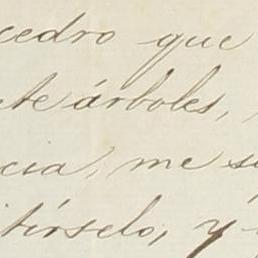 cedro que
te árboles,
cia, me s
tírselo, y